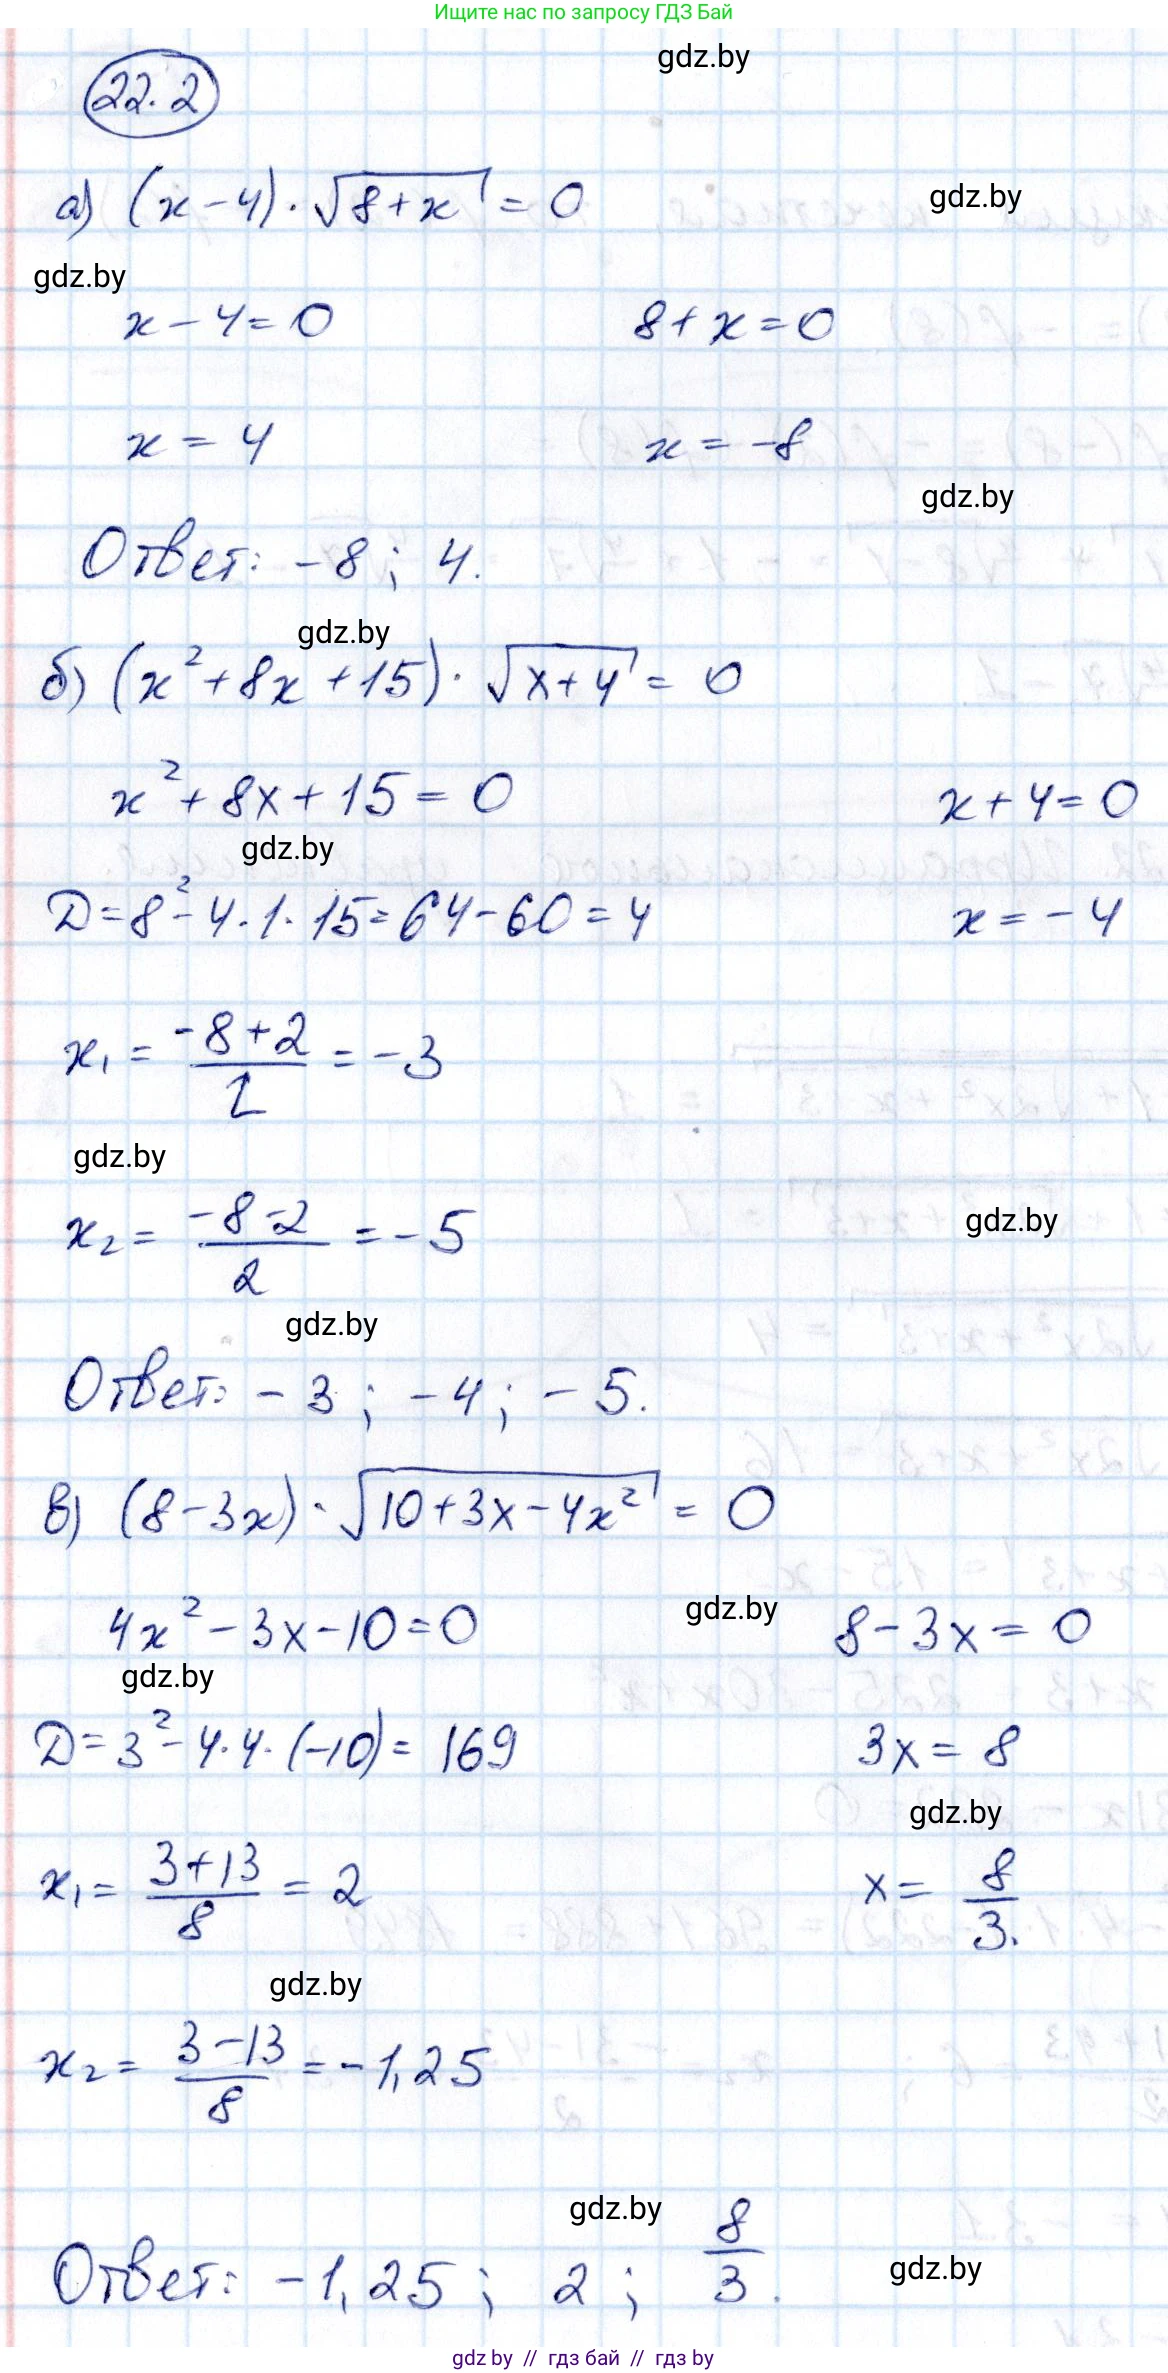 Ищите нас по запросу ГДЗ Бай
gdz.by
22.2
а) (x-4)·√8+x = 0
gdz.by
gdz.by
x-4=0 8+x=0
x = 4 x = -8
gdz.by
Ответ: -8; 4.
gdz.by
б) (x²+8x+15)·√x+4 = 0
x²+8x+15=0 x+4=0
gdz.by
Д=8²-4·1·15=64-60=4 x=-4
x₁ = (-8+2)/2 = -3
gdz.by
x₂ = (-8-2)/2 = -5
gdz.by
gdz.by
Ответ: -3; -4; -5.
в) (8-3x)·√10+3x-4x² = 0
4x²-3x-10=0 gdz.by 8-3x=0
gdz.by
Д=3²-4·4·(-10)=169 3x=8
gdz.by
x₁ = (3+13)/8 = 2 x = 8/3.
gdz.by
x₂ = (3-13)/8 = -1,25
gdz.by
Ответ: -1,25; 2; 8/3.
gdz.by
gdz.by // гдз бай // гдз by